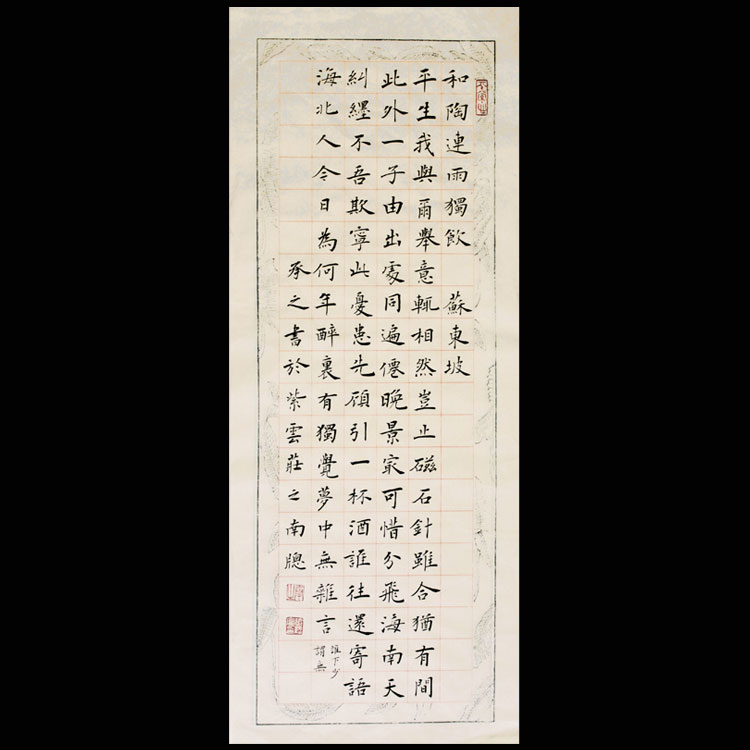 和陶連雨獨飲 蘇東坡
平生我與爾舉意輒相然豈止磁石針雖合猶有間
此外一子由出處同遍僊晚景冣可惜分飛海南天
糾纆不吾欺寧此憂患先顧引一杯酒誰往還寄語
海北人今日為何年醉裏有獨覺夢中無雜言
誰下少
謂無
承之書於紫雲莊之南牕